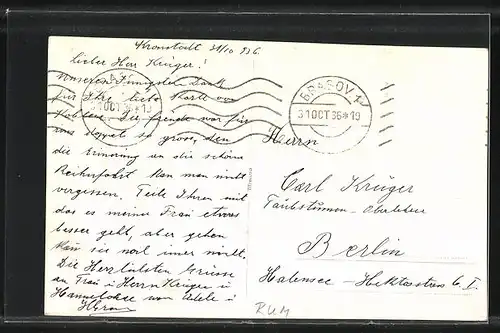 Kronstadt 31/10 936.
Lieber Herr Krüger!
Unseren Innigsten Dank
für Ihre liebe Karte von
Die Freude war für
uns doppel so gross, den
die Erinnrung an die schöne
kan man nicht
vergessen. Teile Ihnen mit
das es meiner Frau etwas
besser geht, aber gehen
kan sie noch imer nicht.
Die Herzlichsten Grüsse
an Frau u Herrn Krüger u
von Adele u
BRASOV 1
31 OCT 36 * 19
Herrn
Carl Krüger
Taubstumen-Oberlehrer
Berlin
Halensee - 
RUM